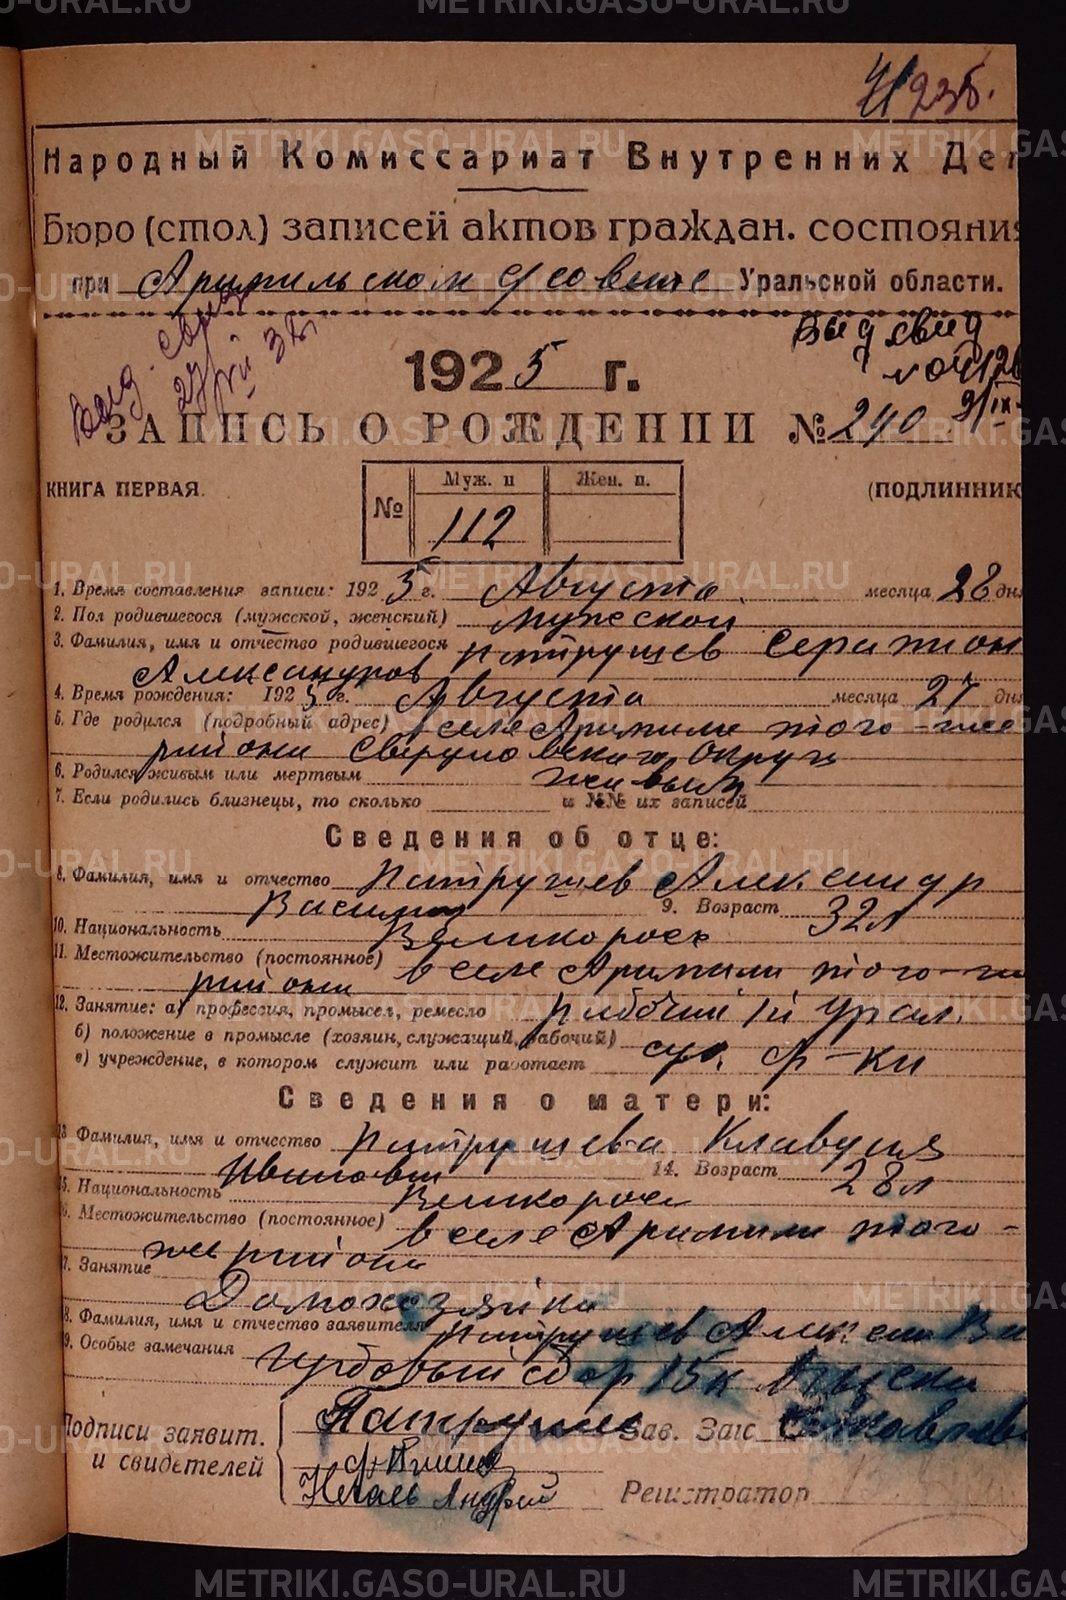 235.
Народный Комиссариат Внутренних Дел
Бюро (стол) записей актов граждан. состояния
при Арамильском Уральской области.
Выд. 
Выд свид
1925 г.
ЗАПИСЬ О РОЖДЕНИИ № 240
КНИГА ПЕРВАЯ. (ПОДЛИННИК
№ Муж. п Жен. п.
112
1. Время составления записи: 1925 г. Августа месяца 28 дня
2. Пол родившегося (мужской, женский) мужской
3. Фамилия, имя и отчество родившегося Патрушев Серапион
Александров
4. Время рождения: 1925 г. Августа месяца 27 дня
5. Где родился (подробный адрес) в селе Арамили того-же
района Свердловского округа
6. Родился живым или мертвым живым
7. Если родились близнецы, то сколько и №№ их записей
Сведения об отце:
8. Фамилия, имя и отчество Патрушев Александр
Василь 9. Возраст 32 л
10. Национальность Великоросс
11. Местожительство (постоянное) в селе Арамили того-же
района
12. Занятие: а) профессия, промысел, ремесло рабочий 1й Урал.
б) положение в промысле (хозяин, служащий, рабочий)
в) учреждение, в котором служит или работает сук. ф-ки
Сведения о матери:
13 Фамилия, имя и отчество Патрушева Клавдия
Ивановна 14. Возраст 28 л
15. Национальность Великоросс
16. Местожительство (постоянное) в селе Арамили того-
же района
17. Занятие
Домохозяйка
18. Фамилия, имя и отчество заявителя Патрушев Алексан Ва
19. Особые замечания гербовый сбор 15к
Подписи заявит. Патрушев Зав. Загс
и свидетелей Андрей Регистратор
METRIKI.GASO-URAL.RU